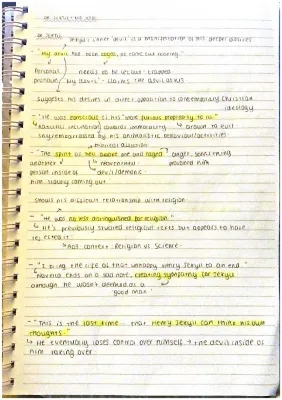 DR JEKYLL AND HYDE
DR JEKYLL
Jekyll's inner 'devil' is a manifestation of his deeper desires
- "My devil had been caged, he came out roaring."
Personal needs to be let out - trapped
pronoun 'my devil' - claims the devil as his
suggests his desires in direct opposition to contemporary Christian
ideology
- "He was conscious of his
natural inclination towards immorality drawn to evil
emphasised by his animalistic behaviour/activities
biblical allusion
- "The spirit of hell awoke me and raged" anger, something
another movement provoked him
person inside of devil/demons
him slowly coming out
shows his difficult relationship with religion
- "He was no less distinguished for religion."
He's previously studied religious texts but appears to have
rejected it
context: Religion vs Science
- "I bring the life of that unhappy Henry Jekyll to an end."
Novella ends on a sad note, creating sympathy for Jekyll
although he wasn't deemed as a
'good man'
- "This is the last time that Henry Jekyll can think his own
thoughts."
He eventually loses control over himself → the devil inside of
him taking over